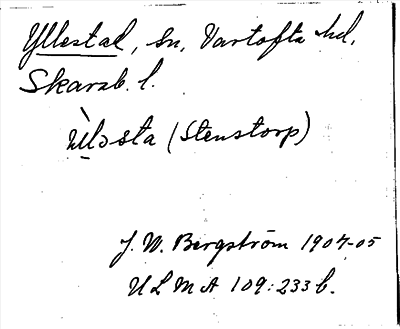 Yllestad, sn, Vartofta hd,
Skarab. l.
(Stenstorp)
J. W. Bergström 1904-05
ULMA 109:233 b.